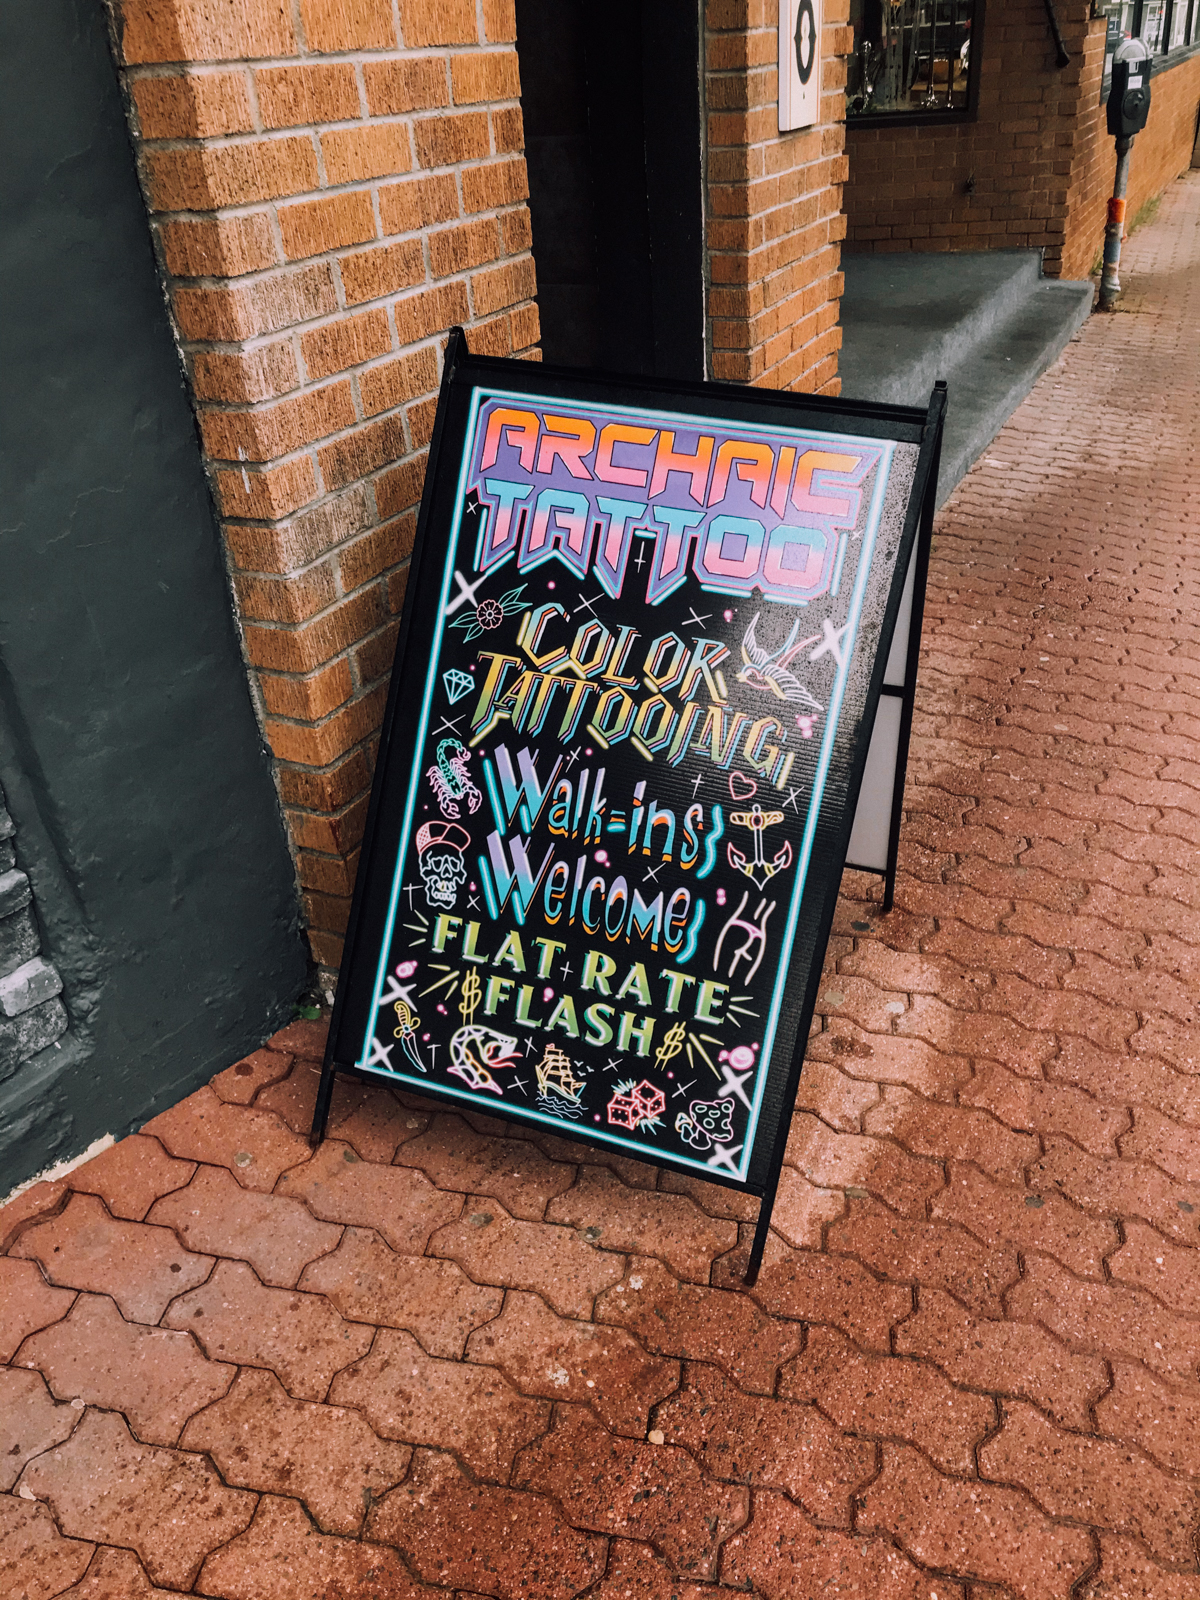 ARCHAIC
TATTOO
COLOR
TATTOOING
Walk-ins
Welcome
FLAT RATE
$FLASH$